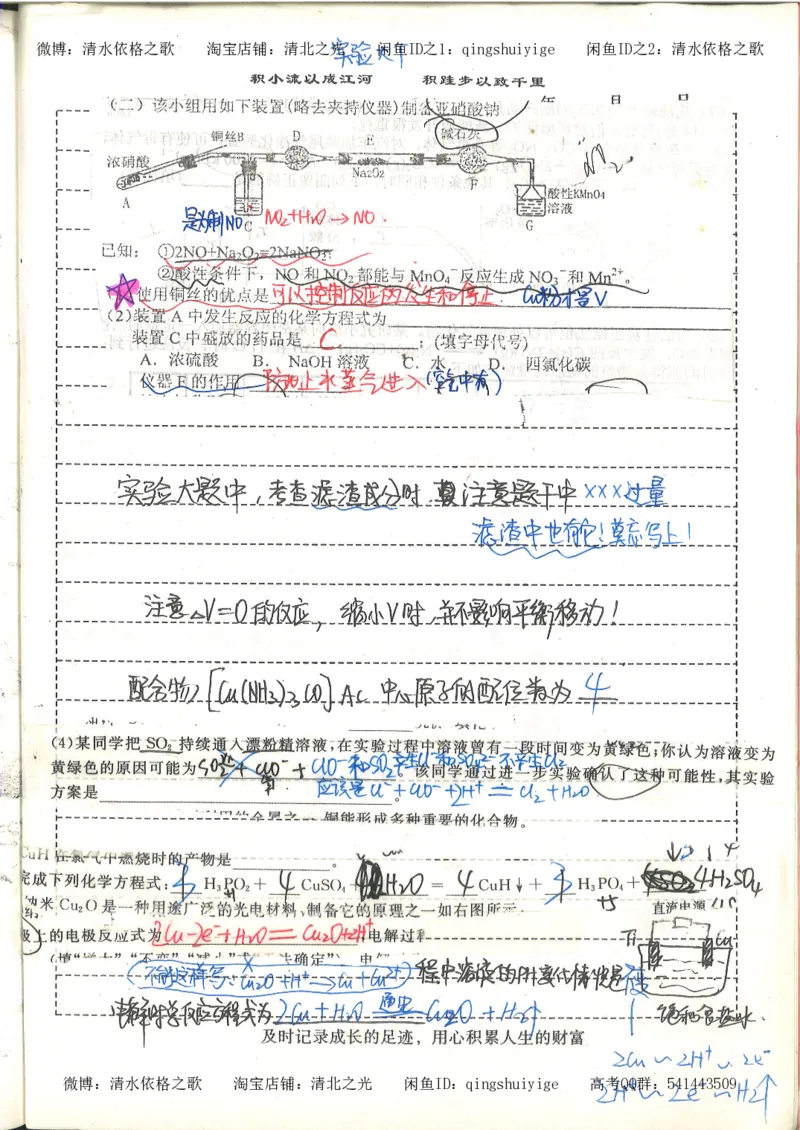 微博：清水依格之歌 淘宝店铺：清北之光 闲鱼ID之1：qingshuiyige 闲鱼ID之2：清水依格之歌
积小流以成江河 积跬步以致千里
年 月 日
（二）该小组用如下装置(略去夹持仪器)制备亚硝酸钠
铜丝B D E 碱石灰
浓硝酸 Na₂O₂
A C F 酸性KMnO₄溶液 G
是为制NO NO₂+H₂O→NO.
已知：①2NO+Na₂O₂=2NaNO₃；
②酸性条件下，NO和NO₂都能与MnO₄⁻反应生成NO₃⁻和Mn²⁺。
使用铜丝的优点是可以控制反应的发生和停止. Cu粉不管V
（2）装置A中发生反应的化学方程式为
装置C中盛放的药品是 C. ；(填字母代号)
A．浓硫酸 B．NaOH溶液 C．水 D．四氯化碳
仪器F的作用 防止水蒸气进入(空气中有)
实验大题中，考查滤渣成分时 要注意题干中×××过量
滤渣中也有它！莫忘写上！
注意△V=0的反应，缩小V时，并不影响平衡移动！
配合物[Cu(NH₃)₃CO]Ac中心原子的配位数为 4
(4)某同学把SO₂持续通入漂粉精溶液，在实验过程中溶液曾有一段时间变为黄绿色；你认为溶液变为
黄绿色的原因可能为 ClO⁻和SO₂产生Cl⁻和SO₄²⁻不产生Cl₂ 。该同学通过进一步实验确认了这种可能性，其实验
方案是 。 应该是Cl⁻+ClO⁻+2H⁺=Cl₂+H₂O
铜能形成多种重要的化合物。
CuH在氯气中燃烧时的产物是 。
完成下列化学方程式： 3 H₃PO₂+ 4 CuSO₄ H₂O = 4 CuH↓+ 3 H₃PO₄+ 4H₂SO₄
纳米Cu₂O是一种用途广泛的光电材料，制备它的原理之一如右图所示
直流电源
极上的电极反应式为 2Cu-2e⁻+H₂O=Cu₂O+2H⁺ 电解过
Ti Cu
(不能这样写：Cu₂O+H⁺→Cu+Cu²⁺) 程中溶液的PH变化情况是
电解时总反应方程式为 2Cu+H₂O 通电 Cu₂O+H₂↑ 饱和食盐水.
及时记录成长的足迹，用心积累人生的财富
2Cu～2H⁺～2e⁻
2H⁺～2e⁻～H₂↑
微博：清水依格之歌 淘宝店铺：清北之光 闲鱼ID：qingshuiyige 高考QQ群：541443509